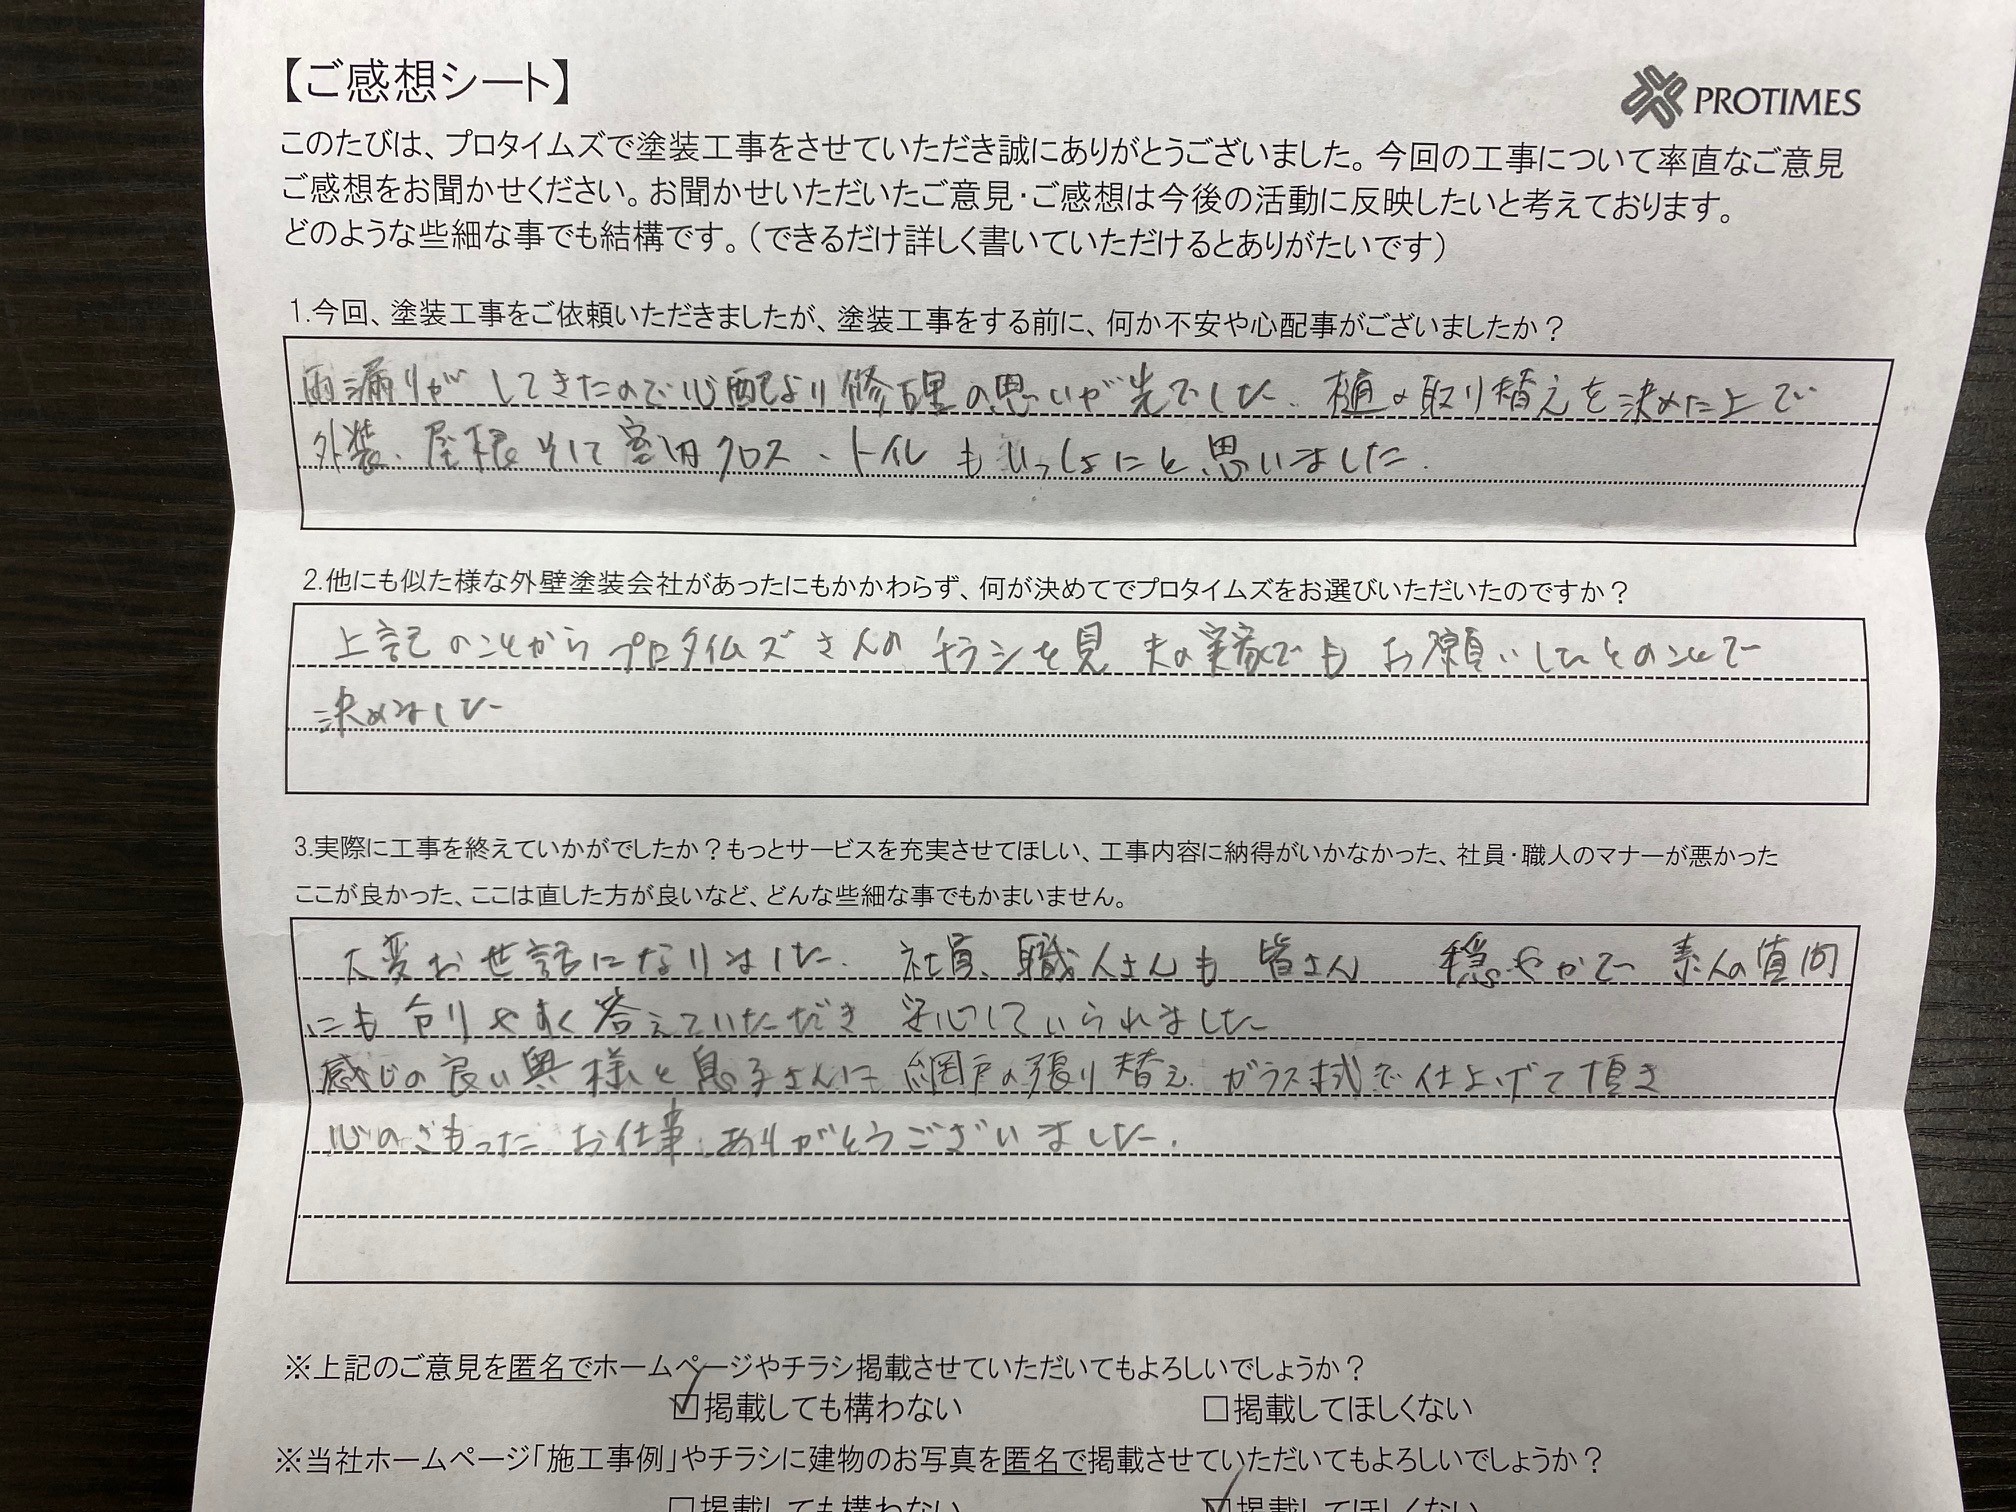 【ご感想シート】
PROTIMES
このたびは、プロタイムズで塗装工事をさせていただき誠にありがとうございました。今回の工事について率直なご意見
ご感想をお聞かせください。お聞かせいただいたご意見・ご感想は今後の活動に反映したいと考えております。
どのような些細な事でも結構です。（できるだけ詳しく書いていただけるとありがたいです）
1.今回、塗装工事をご依頼いただきましたが、塗装工事をする前に、何か不安や心配事がございましたか？
雨漏りがしてきたので心配より修理の思いが先でした。樋の取り替えを決めた上で
外装、屋根そして室内クロス、トイレもいっしょにと思いました。
2.他にも似た様な外壁塗装会社があったにもかかわらず、何が決めてでプロタイムズをお選びいただいたのですか？
上記のことからプロタイムズさんのチラシを見 夫の実家でもお願いしたとのことで
決めました
3.実際に工事を終えていかがでしたか？もっとサービスを充実させてほしい、工事内容に納得がいかなかった、社員・職人のマナーが悪かった
ここが良かった、ここは直した方が良いなど、どんな些細な事でもかまいません。
大変お世話になりました。社員、職人さんも皆さん 穏やかで 素人の質問
にも分りやすく答えていただき 安心していられました
感じの良い奥様と息子さんに網戸の張り替え、ガラス拭で仕上げて頂き
心のこもったお仕事、ありがとうございました。
※上記のご意見を匿名でホームページやチラシ掲載させていただいてもよろしいでしょうか？
☑掲載しても構わない □掲載してほしくない
※当社ホームページ「施工事例」やチラシに建物のお写真を匿名で掲載させていただいてもよろしいでしょうか？
□掲載しても構わない ☑掲載してほしくない